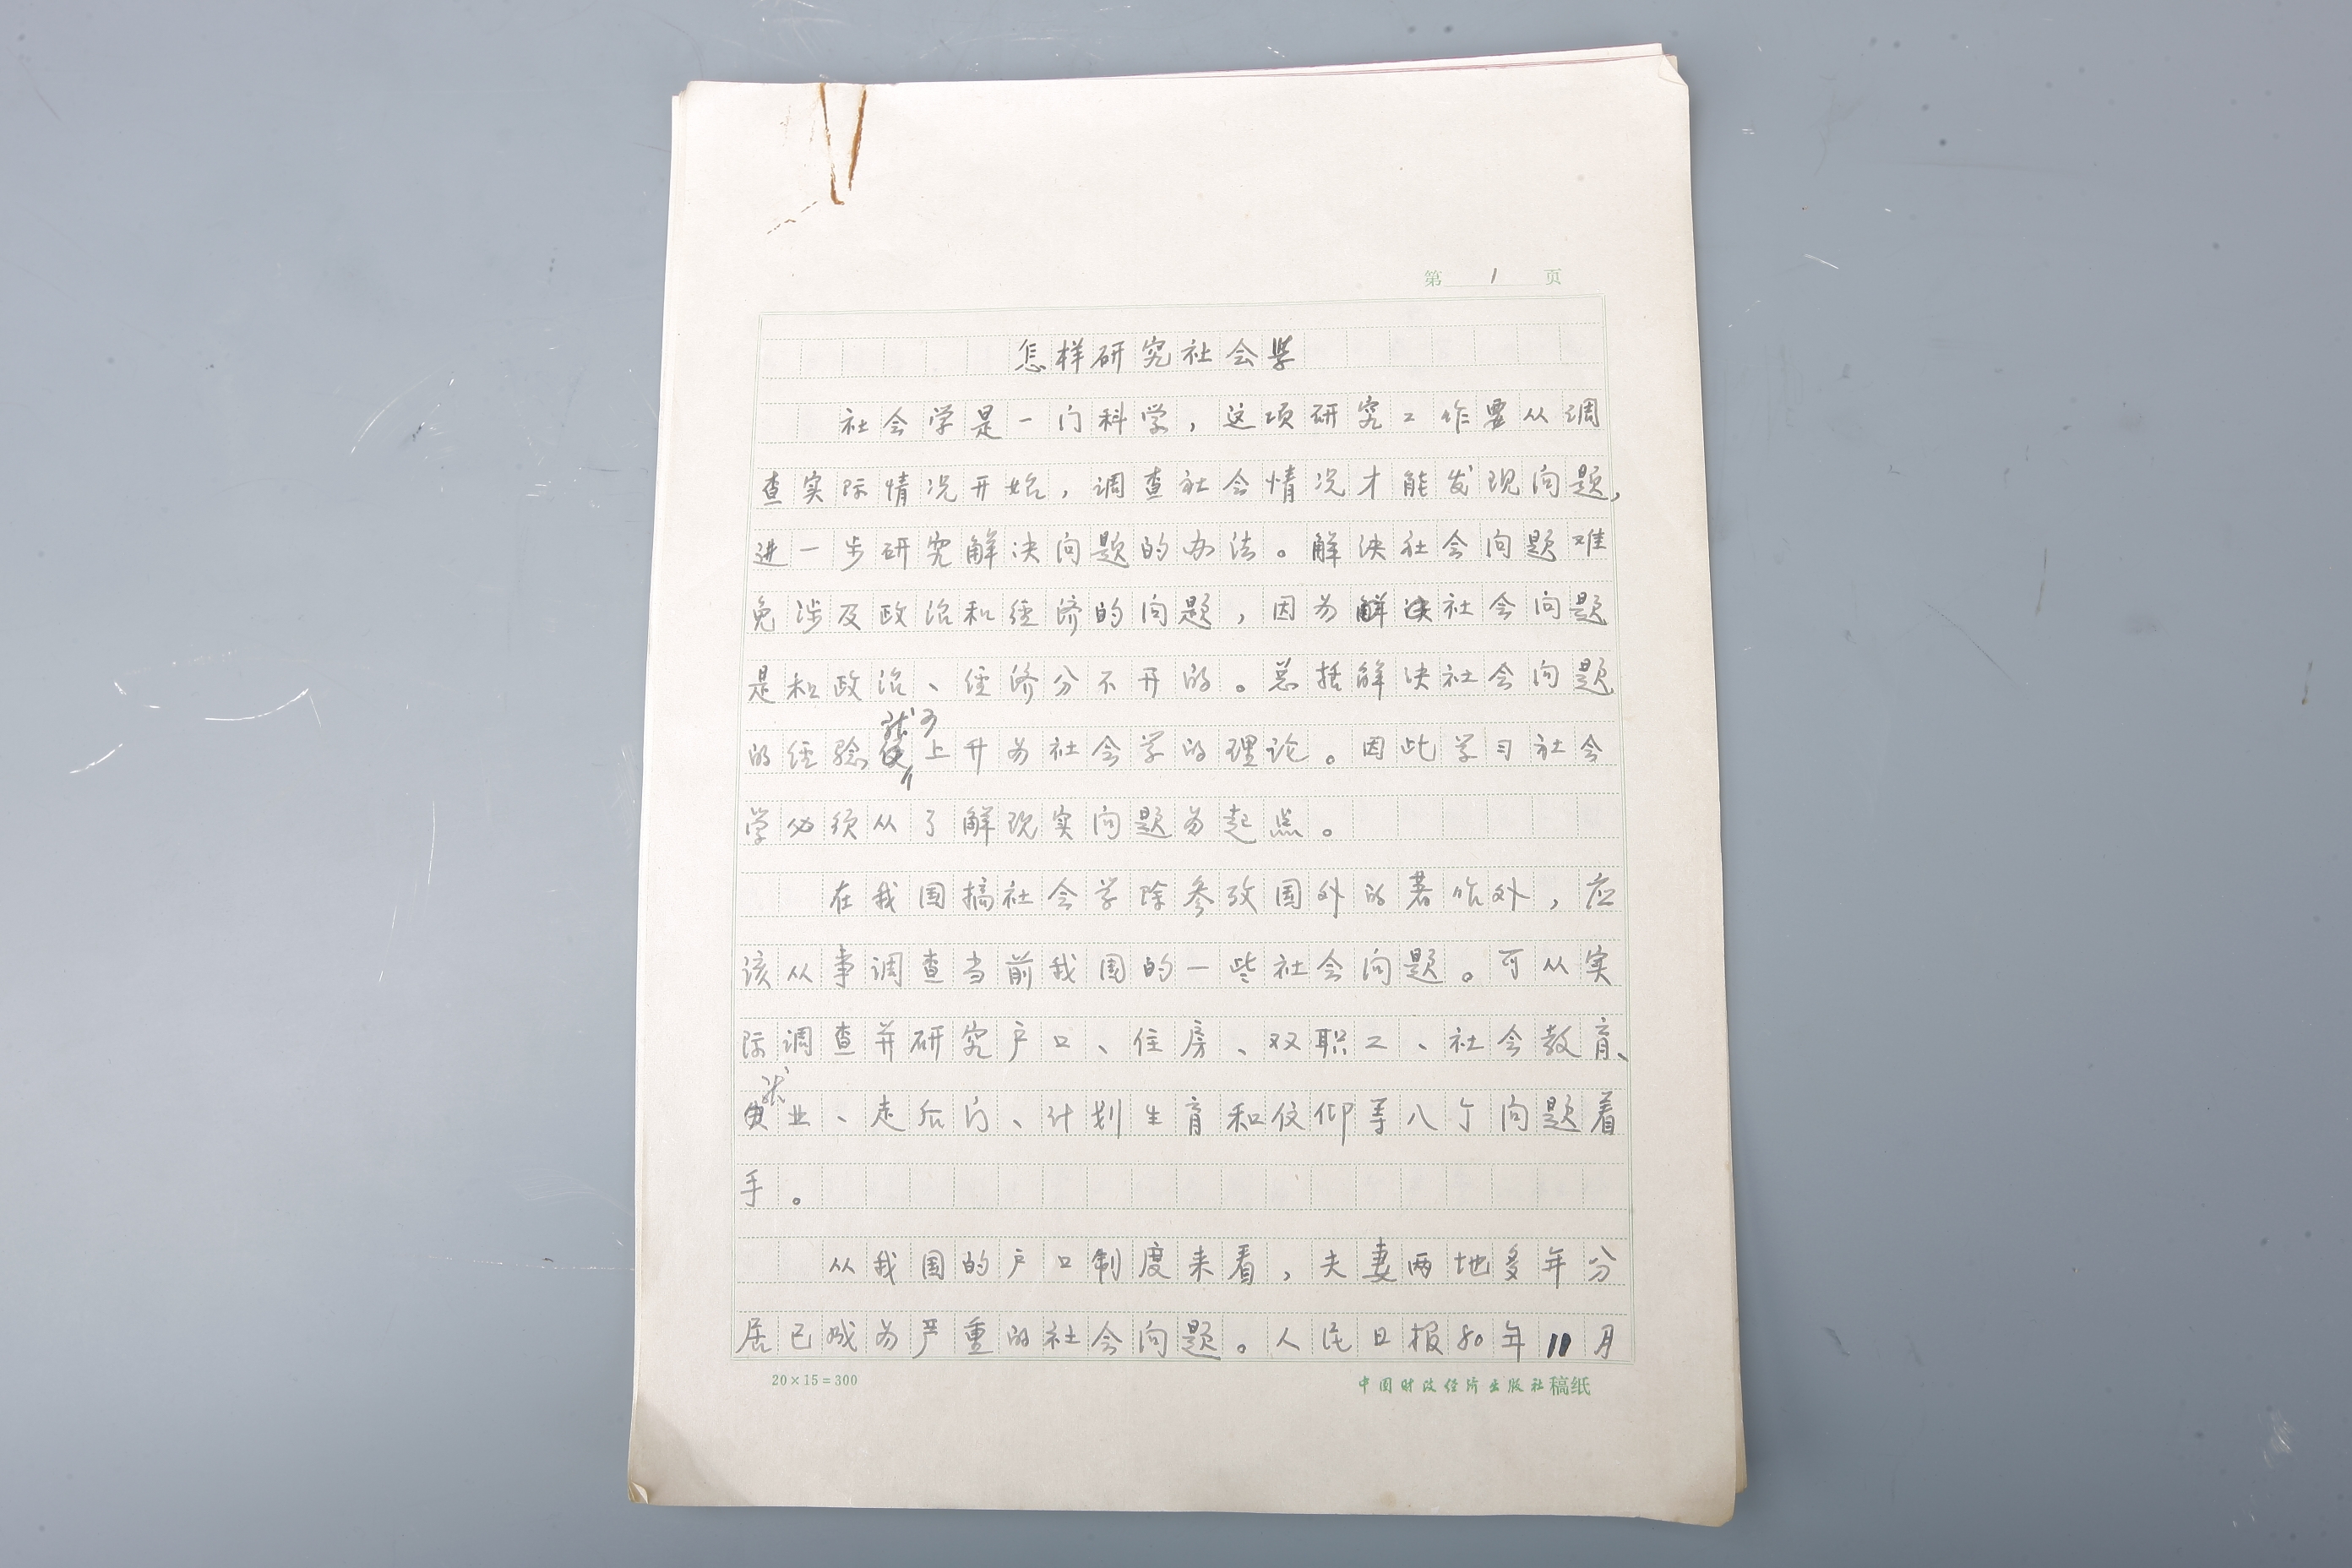 第 1 页
怎样研究社会学
社会学是一门科学，这项研究工作要从调
查实际情况开始，调查社会情况才能发现问题，
进一步研究解决问题的办法。解决社会问题难
免涉及政治和经济的问题，因为解决社会问题
是和政治、经济分不开的。总括解决社会问题
就可
的经验便上升为社会学的理论。因此学习社会
学必须从了解现实问题为起点。
在我国搞社会学除参攷国外的著作外，应
该从事调查当前我国的一些社会问题。可从实
际调查并研究户口、住房、双职工、社会教育、
就
失业、走后门、计划生育和信仰等八个问题着
手。
从我国的户口制度来看，夫妻两地多年分
居已成为严重的社会问题。人民日报80年11月
20×15=300 中国财政经济出版社稿纸